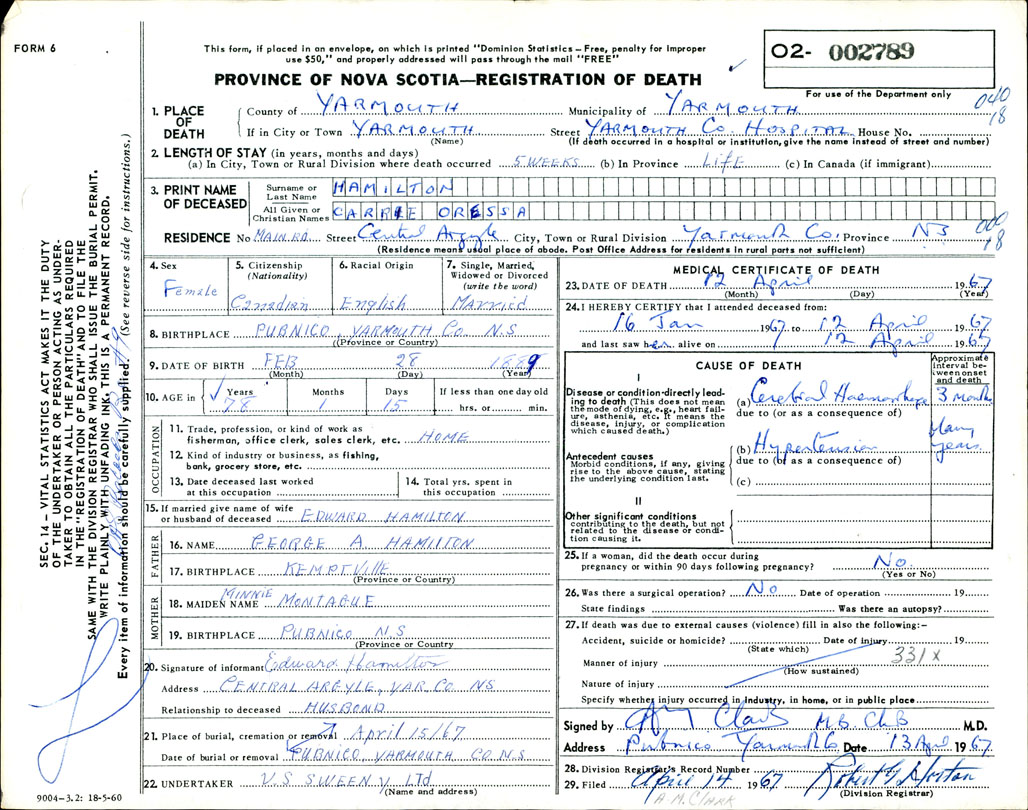 FORM 6
This form, if placed in an envelope, on which is printed "Dominion Statistics – Free, penalty for improper
use $50," and properly addressed will pass through the mail "FREE"
O2- 002789
For use of the Department only
PROVINCE OF NOVA SCOTIA—REGISTRATION OF DEATH
040
18
1. PLACE OF DEATH
County of YARMOUTH Municipality of YARMOUTH
If in City or Town YARMOUTH Street YARMOUTH Co. HOSPITAL House No.
(Name) (If death occurred in a hospital or institution, give the name instead of street and number)
2. LENGTH OF STAY (in years, months and days)
(a) In City, Town or Rural Division where death occurred 5 WEEKS (b) In Province LIFE (c) In Canada (if immigrant)
3. PRINT NAME OF DECEASED
Surname or Last Name HAMILTON
All Given or Christian Names CARRIE ORESSA
18
RESIDENCE No MAIN RD. Street Central Argyle City, Town or Rural Division Yarmouth Co. Province NS
(Residence means usual place of abode. Post Office Address for residents in rural parts not sufficient)
4. Sex Female
5. Citizenship (Nationality) Canadian
6. Racial Origin English
7. Single, Married, Widowed or Divorced (write the word) Married
8. BIRTHPLACE PUBNICO, YARMOUTH Co. N.S
(Province or Country)
9. DATE OF BIRTH FEB 28 1889
(Month) (Day) (Year)
10. AGE in Years 78 Months 1 Days 15 If less than one day old hrs. or min.
OCCUPATION
11. Trade, profession, or kind of work as
fisherman, office clerk, sales clerk, etc. HOME
12. Kind of industry or business, as fishing,
bank, grocery store, etc.
13. Date deceased last worked
at this occupation
14. Total yrs. spent in
this occupation
15. If married give name of wife
or husband of deceased EDWARD HAMILTON
FATHER
16. NAME GEORGE A. HAMILTON
17. BIRTHPLACE KEMPTVILLE
(Province or Country)
MOTHER
18. MAIDEN NAME MINNIE MONTAGUE
19. BIRTHPLACE PUBNICO N.S
(Province or Country
20. Signature of informant Edward Hamilton
Address CENTRAL ARGYLE, YAR. CO NS
Relationship to deceased HUSBOND
21. Place of burial, cremation or removal April 15/67
Date of burial or removal PUBNICO YARMOUTH CO N.S
22. UNDERTAKER V.S SWEENY Ltd
(Name and address)
9004-3.2: 18-5-60
MEDICAL CERTIFICATE OF DEATH
23. DATE OF DEATH 12 April 1967
(Month) (Day) (Year)
24. I HEREBY CERTIFY that I attended deceased from:
16 Jan 1967 to 12 April 1967
and last saw her alive on 12 April 1967
CAUSE OF DEATH
Approximate interval between onset and death
I
Disease or condition directly leading to death (This does not mean the mode of dying, e.g., heart failure, asthenia, etc. It means the disease, injury, or complication which caused death.)
(a) Cerebral Haemorrhage 3 month
due to (or as a consequence of)
Antecedent causes
Morbid conditions, if any, giving rise to the above cause, stating the underlying condition last.
(b) Hypertension Many years
due to (or as a consequence of)
(c)
II
Other significant conditions
contributing to the death, but not related to the disease or condition causing it.
25. If a woman, did the death occur during
pregnancy or within 90 days following pregnancy? No
(Yes or No)
26. Was there a surgical operation? No Date of operation 19
State findings Was there an autopsy?
27. If death was due to external causes (violence) fill in also the following:-
Accident, suicide or homicide? Date of injury 19
(State which) 331X
Manner of injury
(How sustained)
Nature of injury
Specify whether injury occurred in Industry, in home, or in public place
Signed by Clark M.B. Ch.B M.D.
Address Pubnico Yarmouth Co Date 13 April 1967
28. Division Registrar's Record Number
29. Filed April 14 1967 Robert G Horton
(Division Registrar)
A.M. CLARK
SEC. 14 – VITAL STATISTICS MAKES IT THE DUTY
OF THE UNDERTAKER OR PERSON ACTING AS UNDERTAKER TO OBTAIN ALL THE PARTICULARS REQUIRED
IN THE "REGISTRATION OF DEATH" AND TO FILE THE
SAME WITH THE DIVISION REGISTRAR WHO SHALL ISSUE THE BURIAL PERMIT.
WRITE PLAINLY WITH UNFADING INK, THIS IS A PERMANENT RECORD.
Every item of information should be carefully supplied. (See reverse side for instructions.)